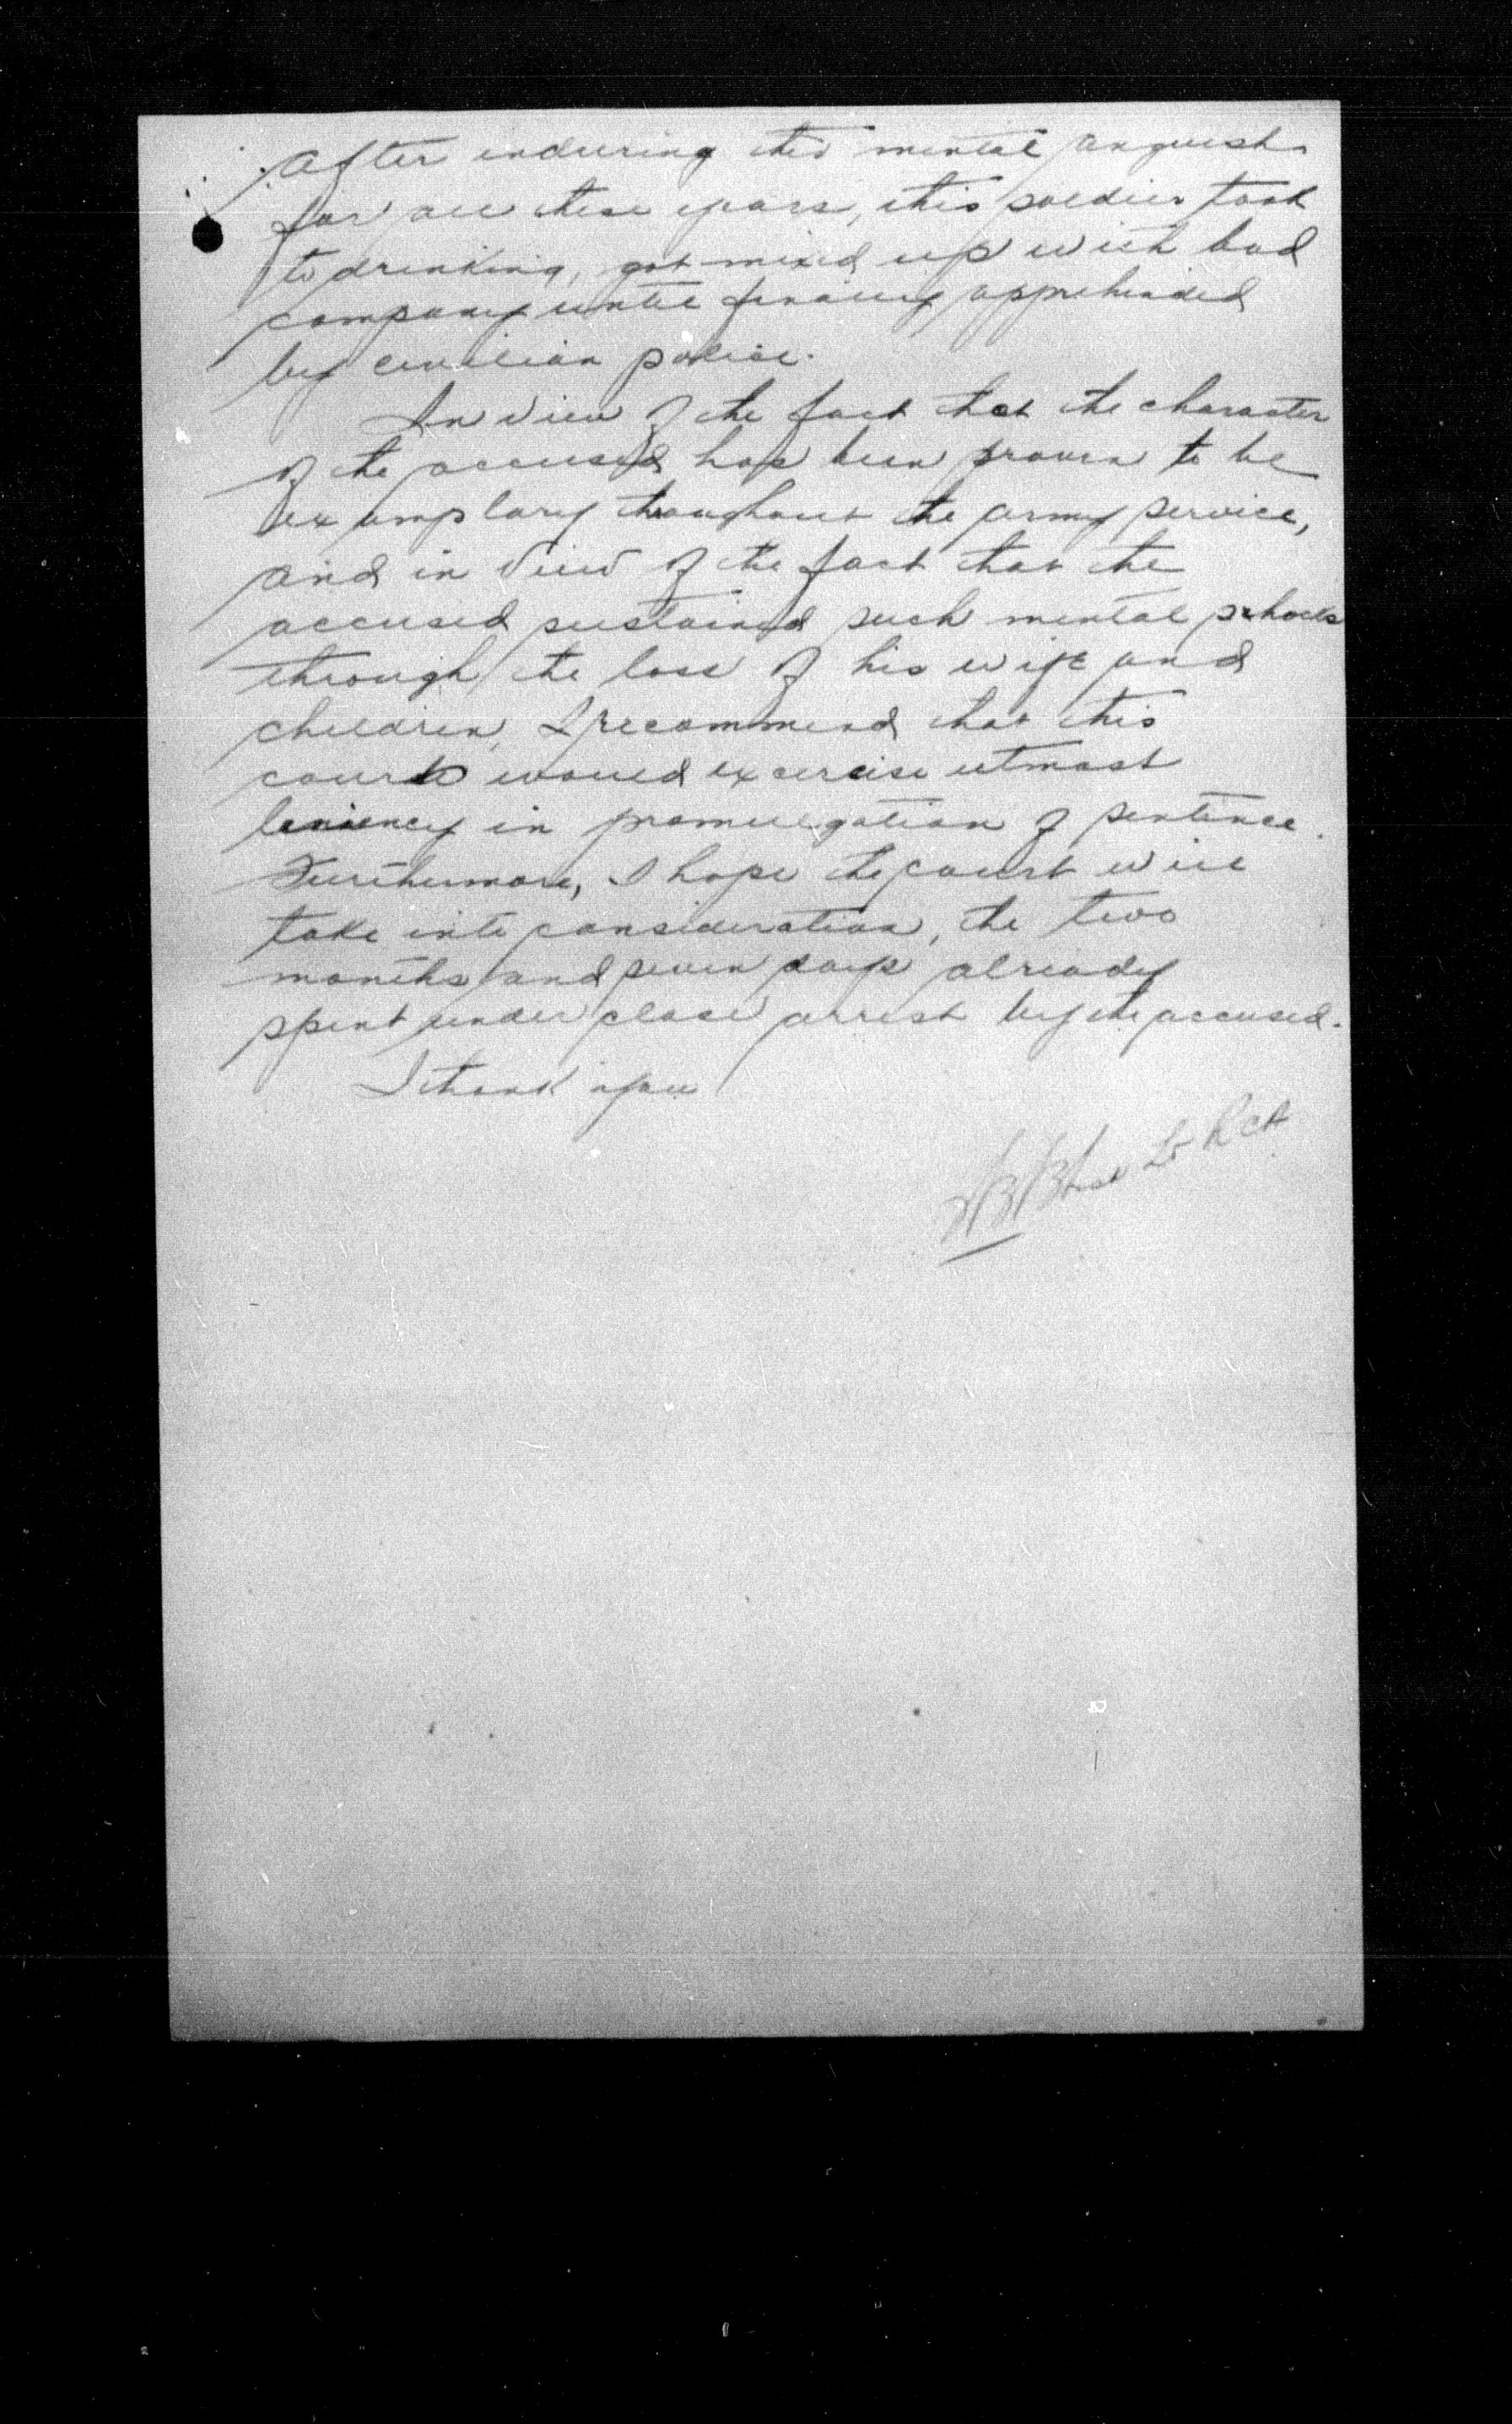 After enduring this mental anguish
for all these years, this soldier took
to drinking, got mixed up with bad
company until finally apprehended
by civilian police.
In view of the fact that the character
of the accused has been proven to be
examplary throughout the army service,
and in view of the fact that the
accused sustained such mental shocks
through the loss of his wife and
children, I recommend that this
court would excercise utmost
leniency in promulgation of sentence.
Furthermore, I hope the court will
take into consideration, the two
months and seven days already
spent under close arrest by the accused.
I thank you
Lt RCA